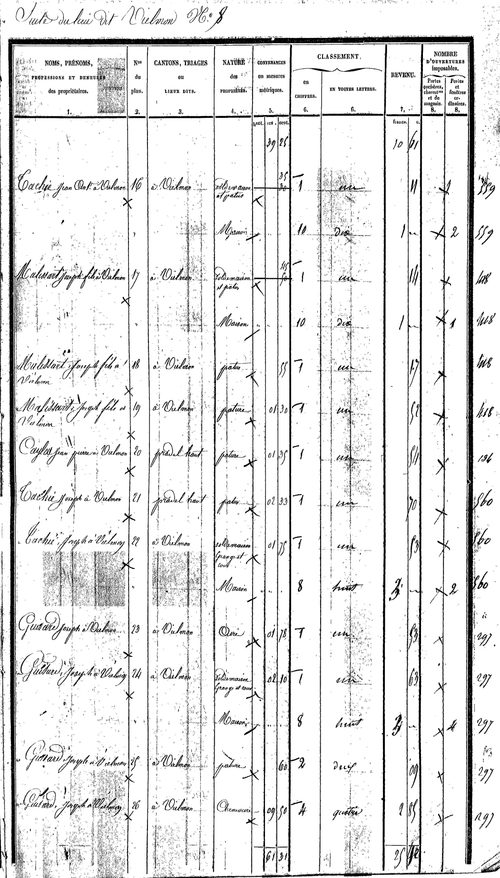 Suite du lieu dit Vielmon N.º 8
NOMS, PRÉNOMS,
PROFESSIONS ET DEMEURES
des propriétaires.
1.
Nos
du
plan.
2.
CANTONS, TRIAGES
ou
LIEUX DITS.
3.
NATURE
des
PROPRIÉTÉS.
4.
CONTENANCES
en mesures
métriques.
5.
CLASSEMENT.
en
CHIFFRES.
6.
EN TOUTES LETTRES.
6.
REVENU.
7.
NOMBRE
D'OUVERTURES
imposables.
Portes
cochères,
charret.res
et de
magasin.
8.
Portes
et
fenêtres
ordinaires.
8.
39 25 10 61
Cachié Jean à Vielmon 16 à Vielmon Sol de maison et patus 1 un 11 1 559
Maison 10 dix 1 2 559
Malissart Joseph fils à Vielmon 17 à Vielmon Sol de maison et patus 1 un 14 408
Maison 10 dix 1 1 408
Malissart Joseph fils à Vielmon 18 à Vielmon patus 55 1 un 17 408
Malissart Joseph fils à Vielmon 19 à Vielmon pature 01 30 1 un 52 408
Caylar Jean pierre à Vielmon 20 pradel haut pature 01 35 1 un 54
Cachié Joseph à Vielmon 21 pradel haut patus 02 33 1 un 70 560
Cachié Joseph à Vielmon 22 à Vielmon Sol de maison grange et cour 01 75 1 un 53 560
Maison 8 huit 3 2 560
Guitard Joseph à Vielmon 23 à Vielmon 01 78 1 un 53 297
Guitard Joseph à Vielmon 24 à Vielmon Sol de maison grange et cour 02 10 1 un 63 297
Maison 8 huit 3 4 297
Guitard Joseph à Vielmon 25 à Vielmon pature 60 2 deux 09 297
Guitard Joseph à Vielmon 26 à Vielmon 09 50 4 quatre 2 85 297
61 31 25